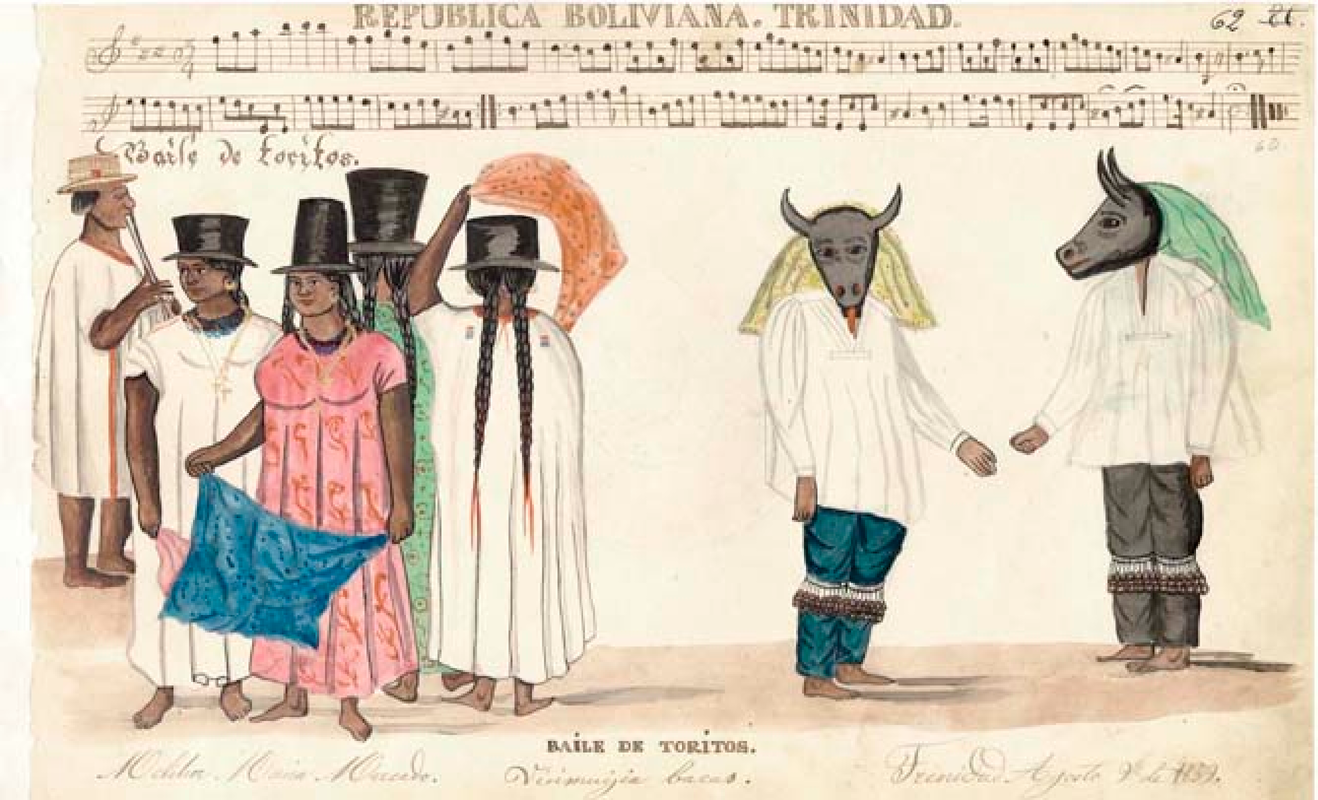 REPUBLICA BOLIVIANA. TRINIDAD.
62 21.
Baile de toritos.
60
BAILE DE TORITOS.
Melchor Maria Mercado.
bacas.
Trinidad. Agosto de 1859.